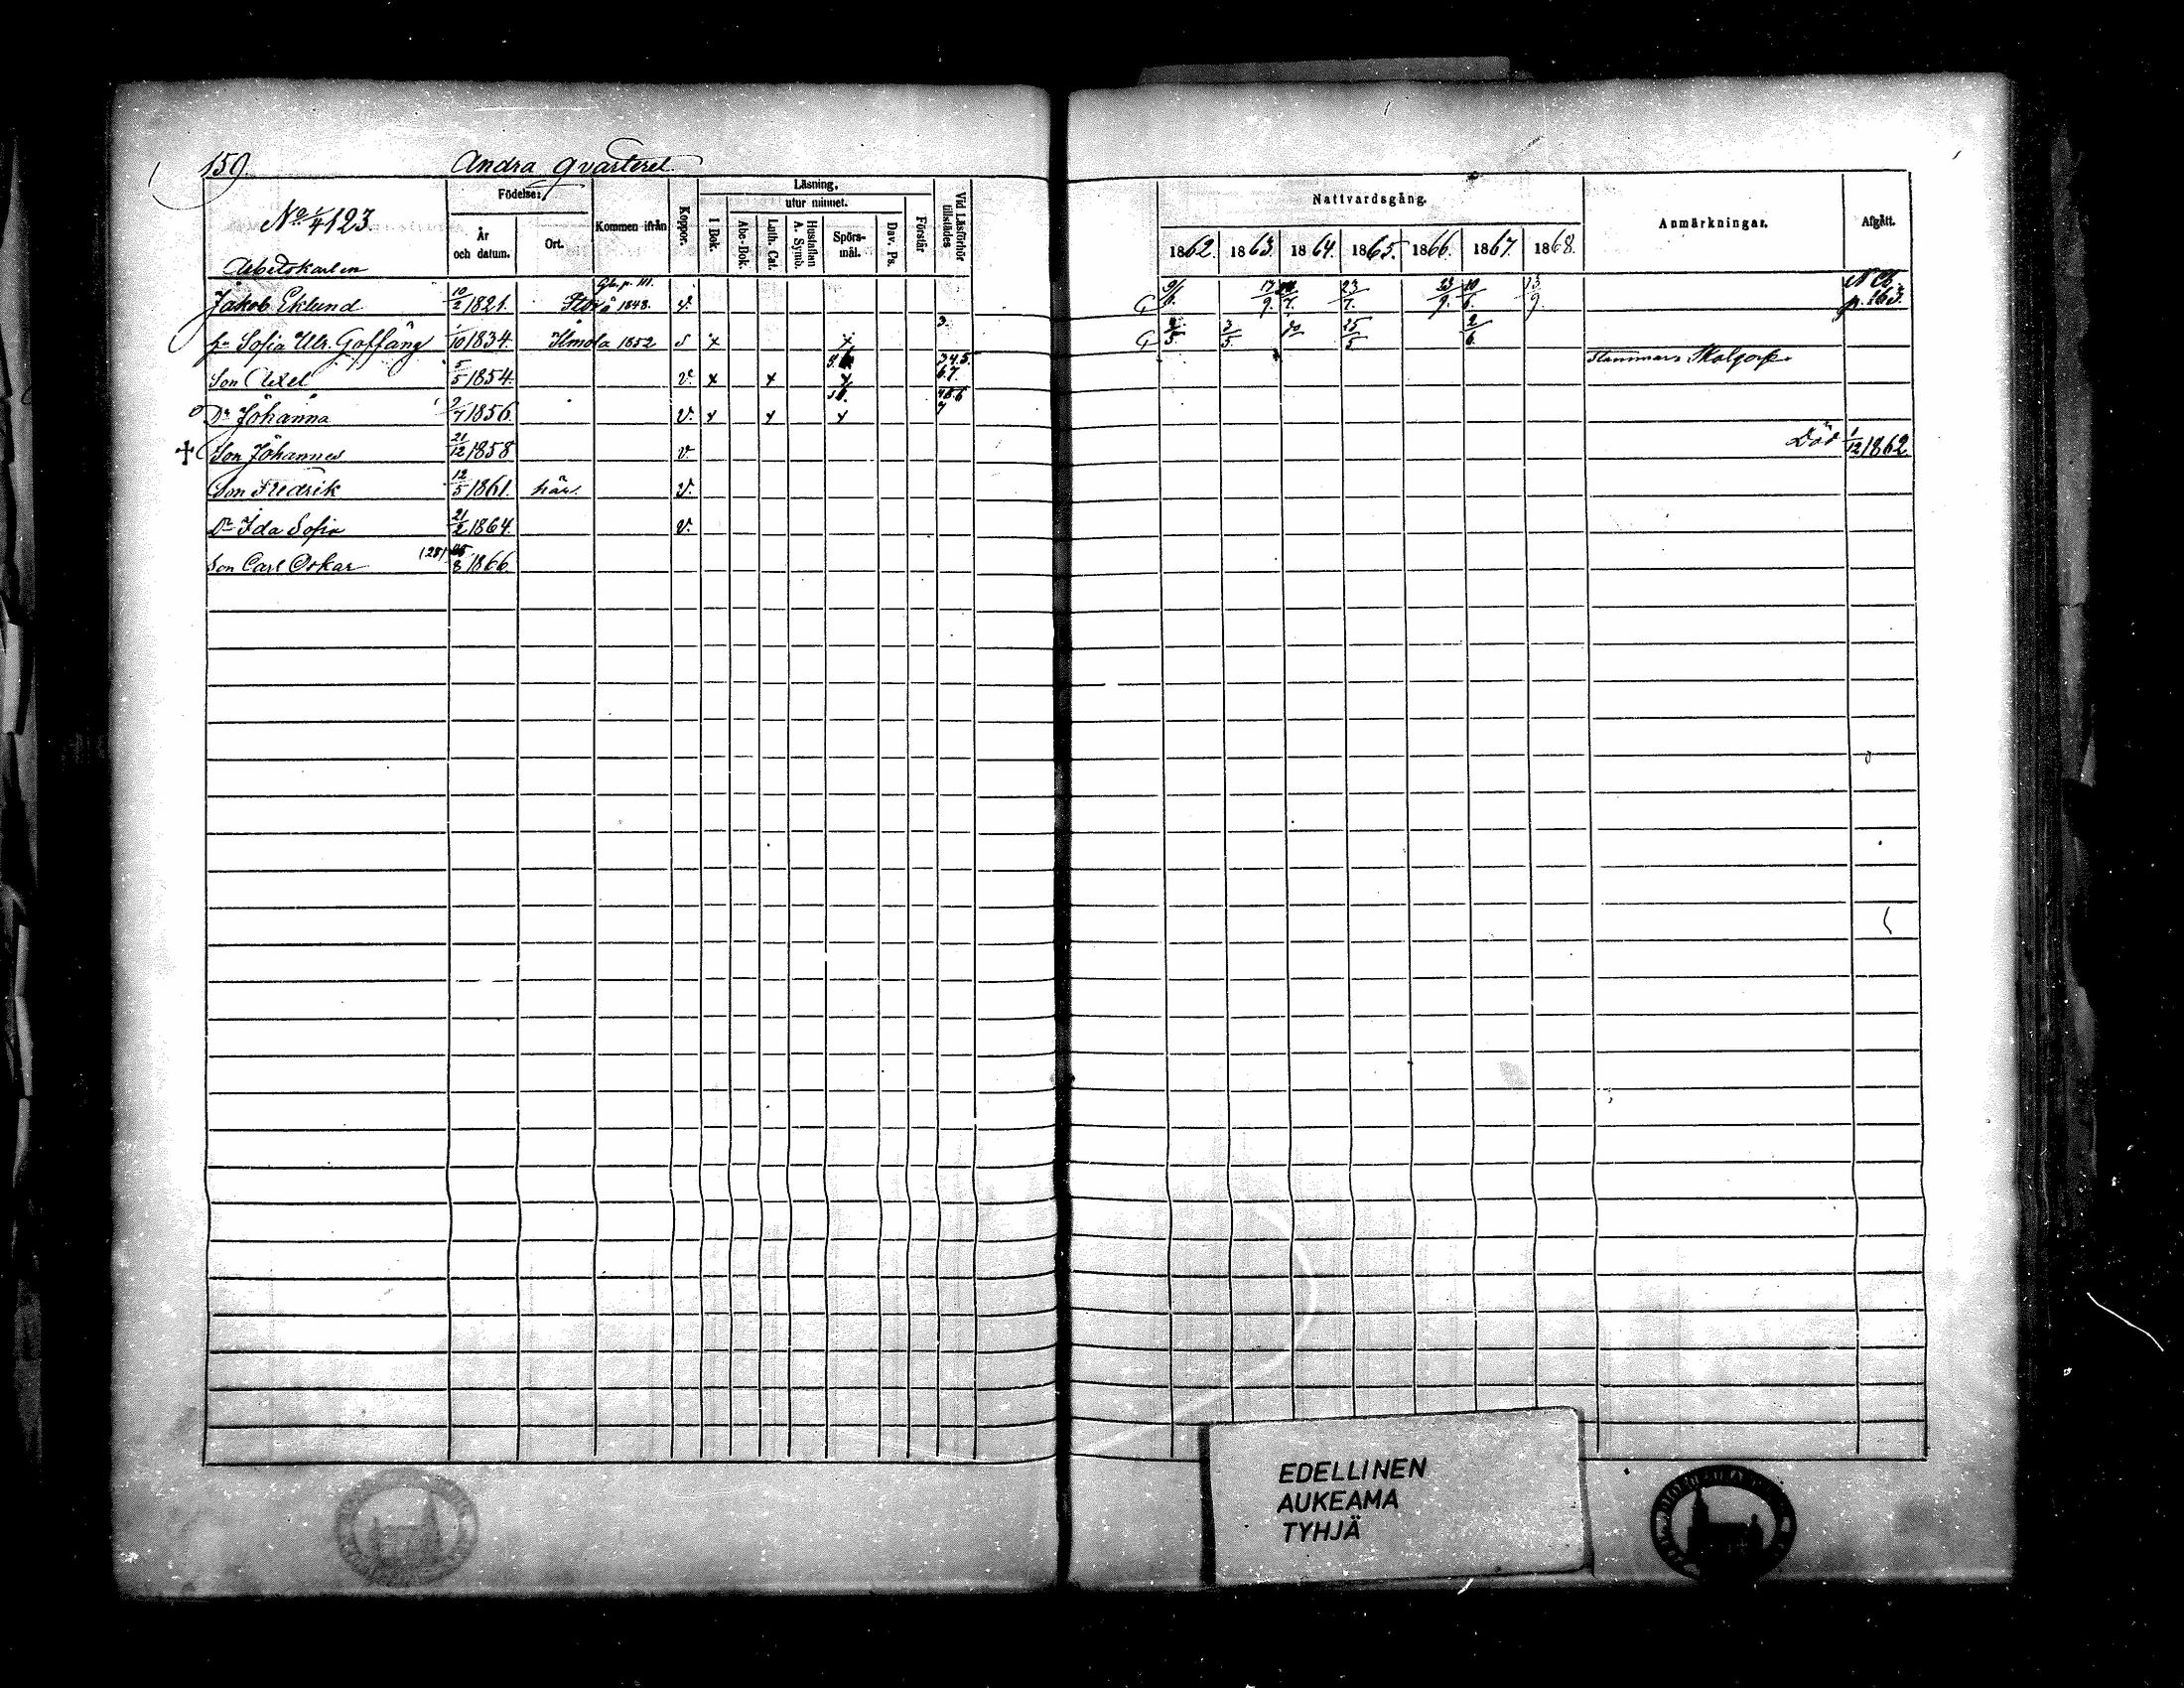 159. Andra qvarteret.
No 1/4 123.
Födelse:
År och datum.
Ort.
Kommen ifrån
Koppor.
Läsning.
utur minnet.
I Bok.
Abc-Bok.
Luth. Cat.
Hustaflan A. Symb.
Spörs-mål.
Dav. Ps.
Förstår
Vid Läsförhör tillstädes
Nattvardsgång.
1862. 1863. 1864. 1865. 1866. 1867. 1868.
Anmärkningar.
Afgått.
Arbetskarlen
Jakob Eklund 10/2 1821. 1848. v. 9/6. 17/9. 23/7. 23/9. 10/6. 13/9 p. 163.
Sofia Ulr. Goffäng 1/10 1834. Ilmola 1852 x x 3. 3/5. 25/5 2/6.
Son Axel 5/5 1854. v. x x x 3.4.5. 6.7
Dr Johanna 2/7 1856. v. x x x 4.5.6 7
Son Johannes 21/12 1858 v. Död 1/12 1862
Son Fredrik 12/5 1861. här. v.
Dr Ida Sofia 21/2 1864. v.
Son Carl Oskar (28) 8 1866.
EDELLINEN
AUKEAMA
TYHJÄ